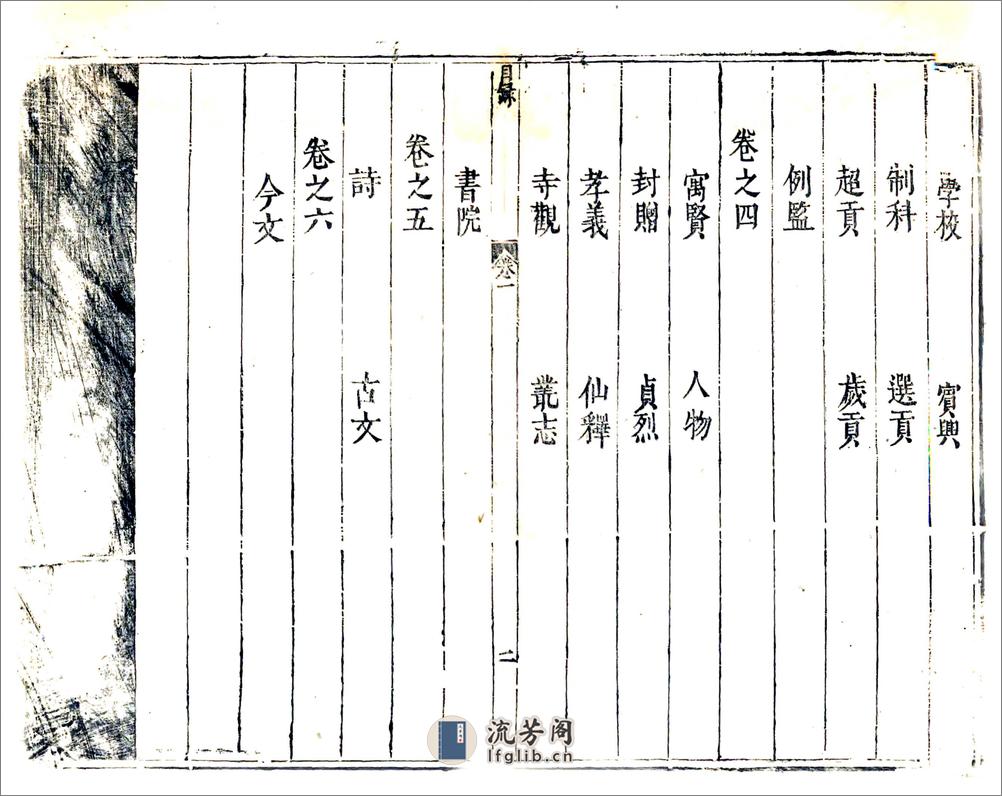 學校　賓興
制科　選貢
超貢　歲貢
例監
卷之四
寓賢　人物
封贈　貞烈
孝義　仙釋
寺觀　叢志
目録　卷一　二
書院
卷之五
詩　古文
卷之六
今文
流芳阁
lfglib.cn